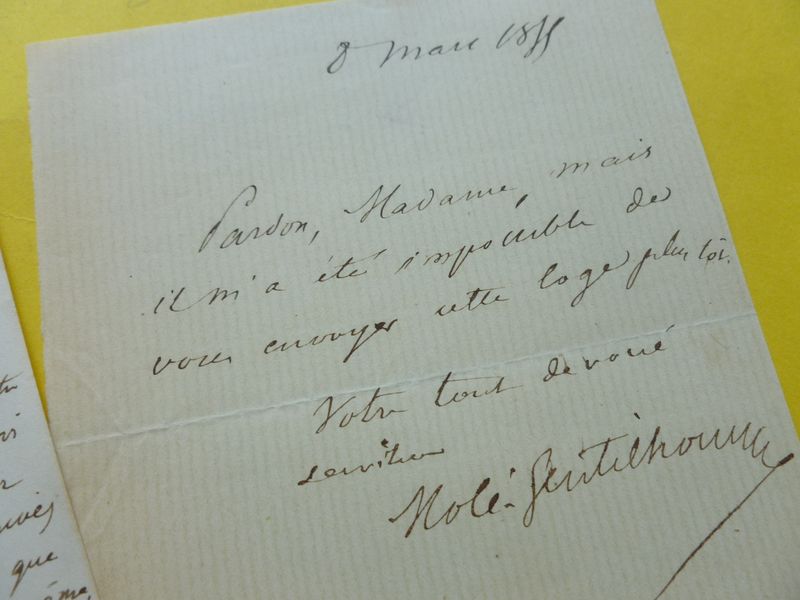 8 mars 1855
Pardon, Madame, mais
il m'a été impossible de
vous envoyer cette loge plus tôt.
Votre tout dévoué
serviteur
Molé-Gentilhomme
que